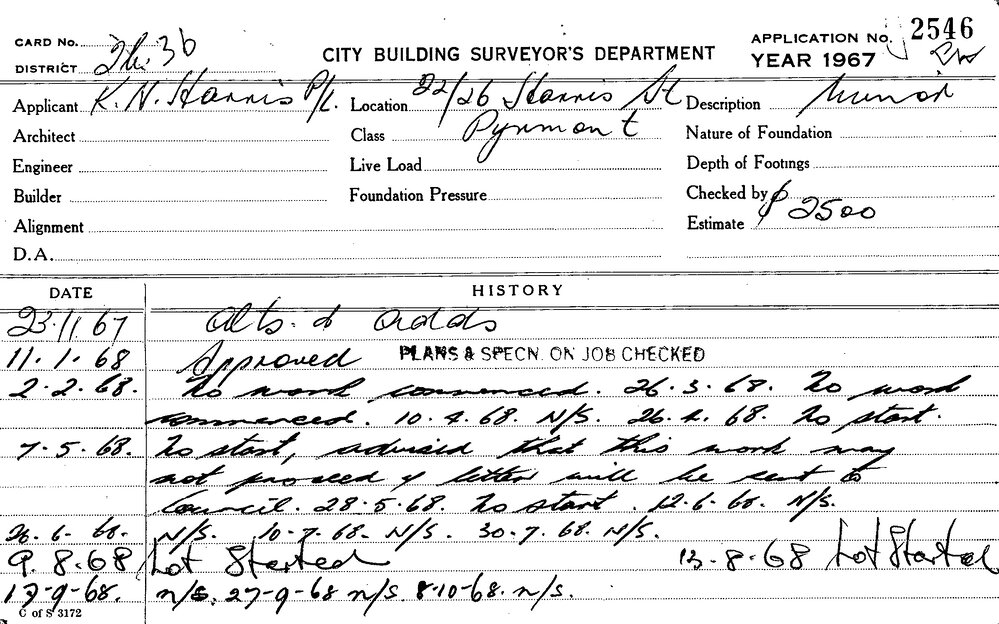 CARD No. 2h. 36
CITY BUILDING SURVEYOR'S DEPARTMENT
APPLICATION No. 2546
DISTRICT
YEAR 1967
Applicant K. N. Harris P/L.
Location 22/26 Harris St
Pyrmont
Description Minor
Architect
Class
Nature of Foundation
Engineer
Live Load
Depth of Footings
Builder
Foundation Pressure
Checked by
Alignment
Estimate $ 2500
D.A.
DATE
HISTORY
23.11 67 Alts. & adds
11.1.68 Approved PLANS & SPECN. ON JOB CHECKED
2.2.68. No work commenced. 26.3.68. No work
commenced. 10.4.68. N/S. 26.4.68. No start.
7.5.68. No start, advised that this work may
not proceed & letter will be sent to
Council. 28.5.68. No start. 12.6.68. N/S.
26.6.68. N/S. 10.7.68. N/S. 30.7.68. N/S.
9.8.68 Not Started 13.8.68 Not Started
17-9-68. n/s. 27-9-68 n/s. 8-10-68. n/s.
C of S 3172